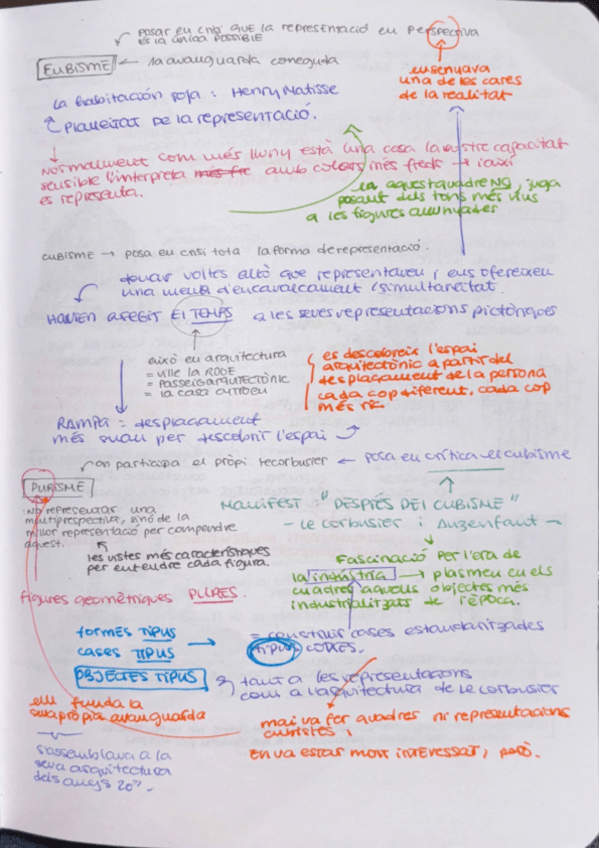 posar en crisi que la representació en perspectiva
és la única possible
CUBISME ← 1a avanguarda coneguda
ensenyava
una de les cares
de la realitat
La habitación roja : Henry Matisse
Planeitat de la representació.
Normalment com més lluny està una cosa la nostre capacitat
sensible l'interpreta més fre amb colors més freds → i així
es representa.
en aquest quadre NO, juga
posant dels tons més vius
a les figures allunyades
CUBISME → posa en crisi tota la forma de representació.
donar voltes allò que representaven i ens ofereixen
una mena d'encavalcament / simultaneïtat.
HAVIEN AFEGIT El TEMPS a les seves representacions pictòriques
això en arquitectura
= Ville la ROCE
= PASSEIG ARQUITECTÒNIC
= la casa citroen
es descobreix l'espai
arquitectònic a partir del
desplaçament de la persona
cada cop diferent, cada cop
més ric
RAMPA = desplaçament
més suau per descobrir l'espai
on participa el pròpi lecorbusier ← posa en crítica el cubisme
PURISME
NO representar una
multiprespectiva, sinó de la
millor representació per comprendre
aquest.
les vistes més característiques
per entendre cada figura.
MANIFEST : "DESPRÉS DEL CUBISME"
- Le Corbusier i Auzenfant -
Fascinació per l'era de
la indústria → plasmen en els
quadres aquells objectes més
industrialitzats de l'època.
figures geomètriques PURES.
formes TIPUS
cases TIPUS →
OBJECTES TIPUS
= construir cases estandaritzades
TIPUS
tant a les representacions
com a l'arquitectura de le corbusier
ell funda la
seva pròpia avanguarda
mai va fer quadres ni representacions
cubistes,
en va estar molt interessat, però.
s'assemblava a la
seva arquitectura
dels anys 20.